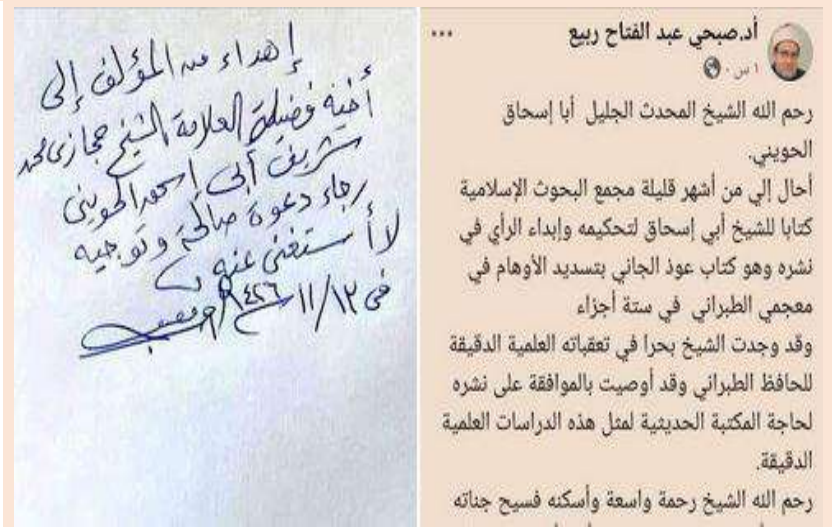 أد.صبحي عبد الفتاح ربيع
١ س ·
رحم الله الشيخ المحدث الجليل أبا إسحاق
الحويني.
أحال إلي من أشهر قليلة مجمع البحوث الإسلامية
كتابا للشيخ أبي إسحاق لتحكيمه وإبداء الرأي في
نشره وهو كتاب عوذ الجاني بتسديد الأوهام في
معجمي الطبراني في ستة أجزاء
وقد وجدت الشيخ بحرا في تعقباته العلمية الدقيقة
للحافظ الطبراني وقد أوصيت بالموافقة على نشره
لحاجة المكتبة الحديثية لمثل هذه الدراسات العلمية
الدقيقة.
رحم الله الشيخ رحمة واسعة وأسكنه فسيح جناته
إهداء من المؤلف إلى
أخيه فضيلة العلامة الشيخ حجازى محمد
شريف أبى إسحق الحوينى
رجاء دعوة صالحة وتوجيه
لا أستغنى عنه
فى ١١/١٢/١٤٢٦